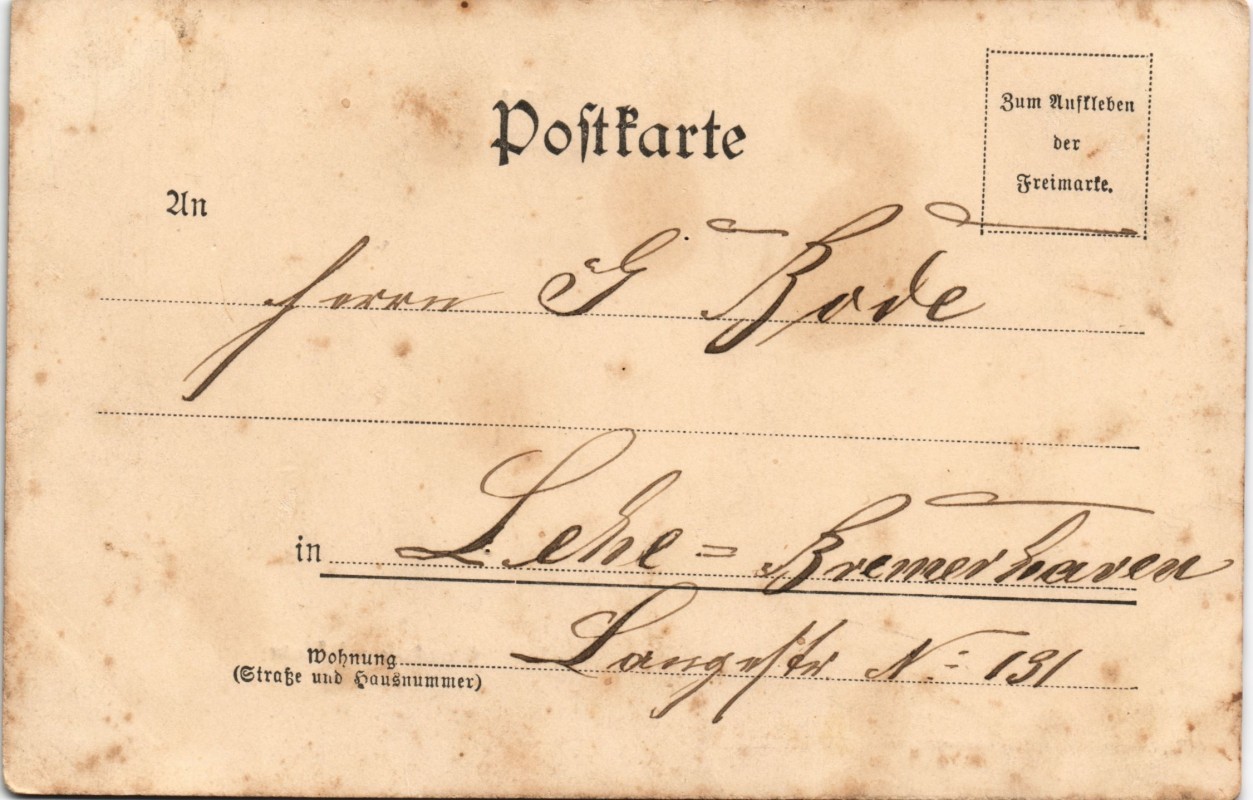 Postkarte
Zum Aufkleben
der
Freimarke.
An
Herrn G Bode
in Lehe = Bremerhaven
Wohnung Langestr No: 131
(Straße und Hausnummer)